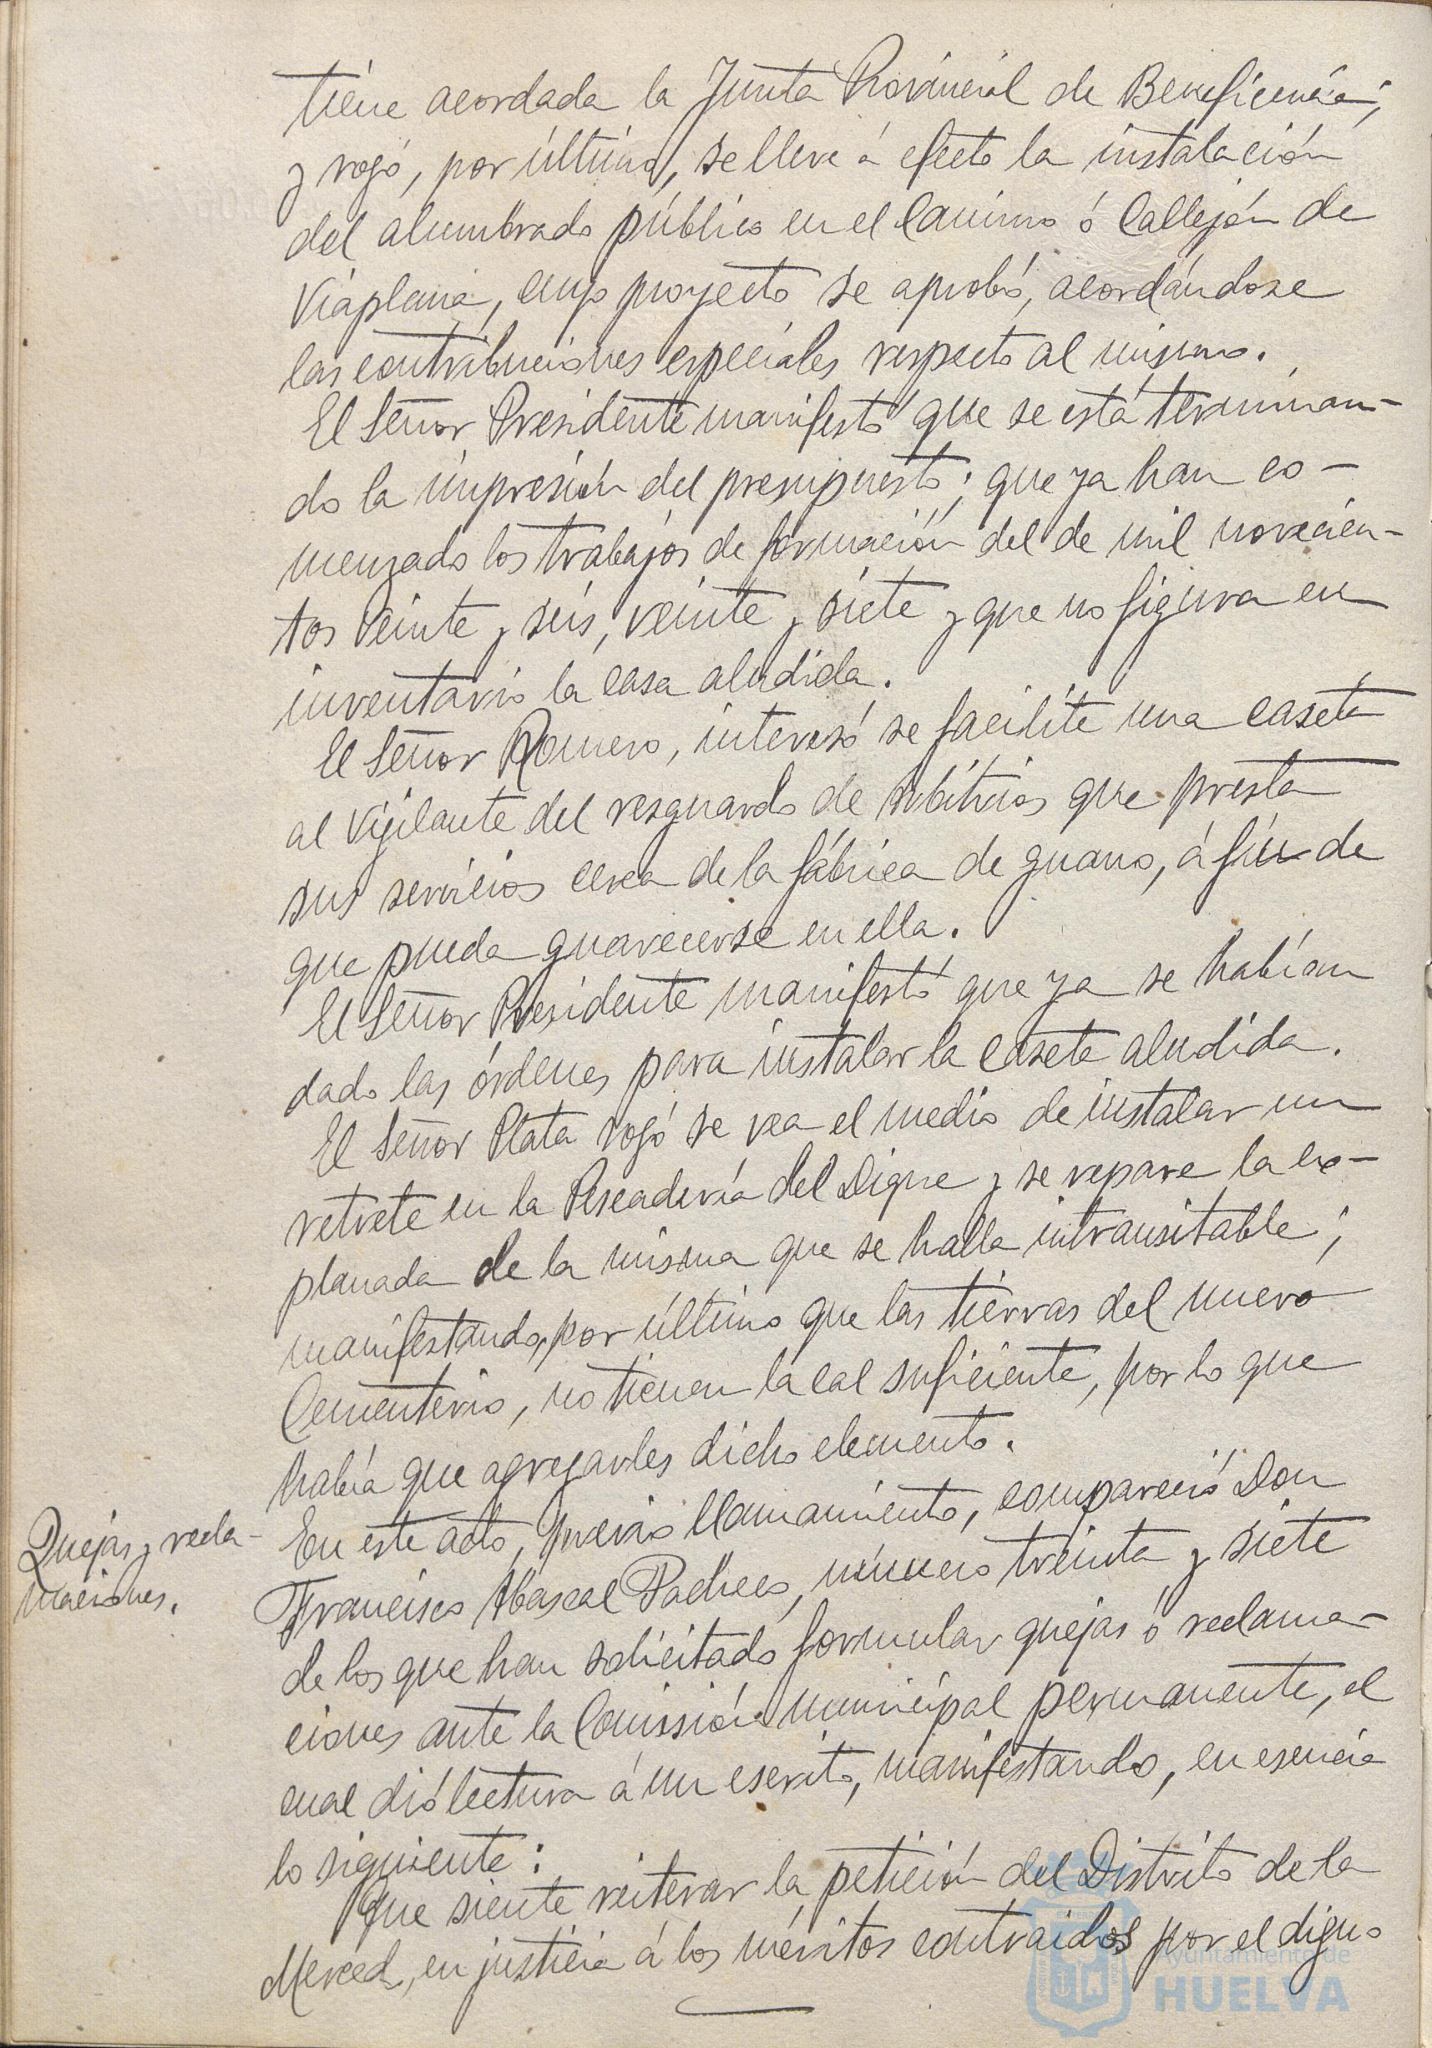 tiene acordada la Junta Provincial de Beneficencia;
y rogó, por último, se lleve á efecto la instalación
del alumbrado público en el Camino ó Callejón de
Viaplana, cuyo proyecto se aprobó, acordándose
las contribuciones especiales respecto al mismo.
El Señor Presidente manifestó que se está terminan-
do la impresión del presupuesto; que ya han co-
menzado los trabajos de formación del de mil novecien-
tos veinte y seis, veinte y siete y que no figura en
inventario la casa aludida.
El Señor Romero, interesó se facilite una caseta
al Vigilante del resguardo de Arbitrios que presta
sus servicios cerca de la fábrica de guano, á fin de
que pueda guarecerse en ella.
El Señor Presidente manifestó que ya se habían
dado las órdenes para instalar la caseta aludida.
El Señor Plata rogó se vea el medio de instalar un
retrete en la Pescadería del Dique y se repare la ex-
planada de la misma que se halla intransitable;
manifestando, por último que las tierras del nuevo
Cementerio, no tienen la cal suficiente, por lo que
había que agregarles dicho elemento.
Quejas y recla-
maciones.
En este acto, previo llamamiento, compareció Don
Francisco Abascal Pacheco, número treinta y siete
de los que han solicitado formular quejas ó reclama-
ciones ante la Comisión municipal permanente, el
cual dió lectura á un escrito, manifestando, en esencia
lo siguiente:
Que siente reiterar la petición del Distrito de la
Merced, en justicia á los méritos contraidos por el digno
Ayuntamiento de
HUELVA